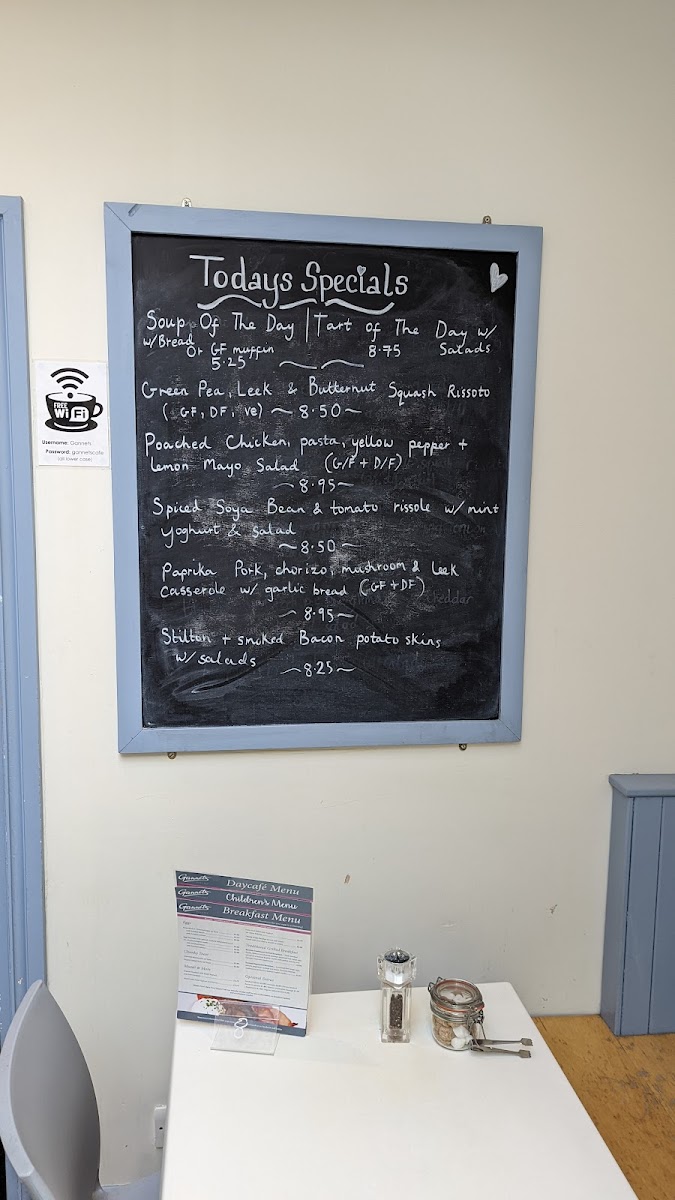 Todays Specials
Soup Of The Day | Tart of The Day w/
w/Bread Or GF muffin 8.75 Salads
5.25
Green Pea, Leek & Butternut Squash Rissoto
(GF, DF, ve) ~ 8.50 ~
Poached Chicken, pasta, yellow pepper +
lemon Mayo Salad (G/F + D/F)
~ 8.95 ~
Spiced Soya Bean & tomato rissole w/ mint
yoghurt & salad
~ 8.50 ~
Paprika Pork, chorizo, mushroom & leek
casserole w/ garlic bread (GF + DF)
~ 8.95 ~
Stilton + smoked Bacon potato skins
w/ salads
~ 8.25 ~
FREE
WiFi
Username: Gannets
Password: gannetscafe
(all lower case)
Gannets Daycafé Menu
Gannets Children's Menu
Gannets Breakfast Menu